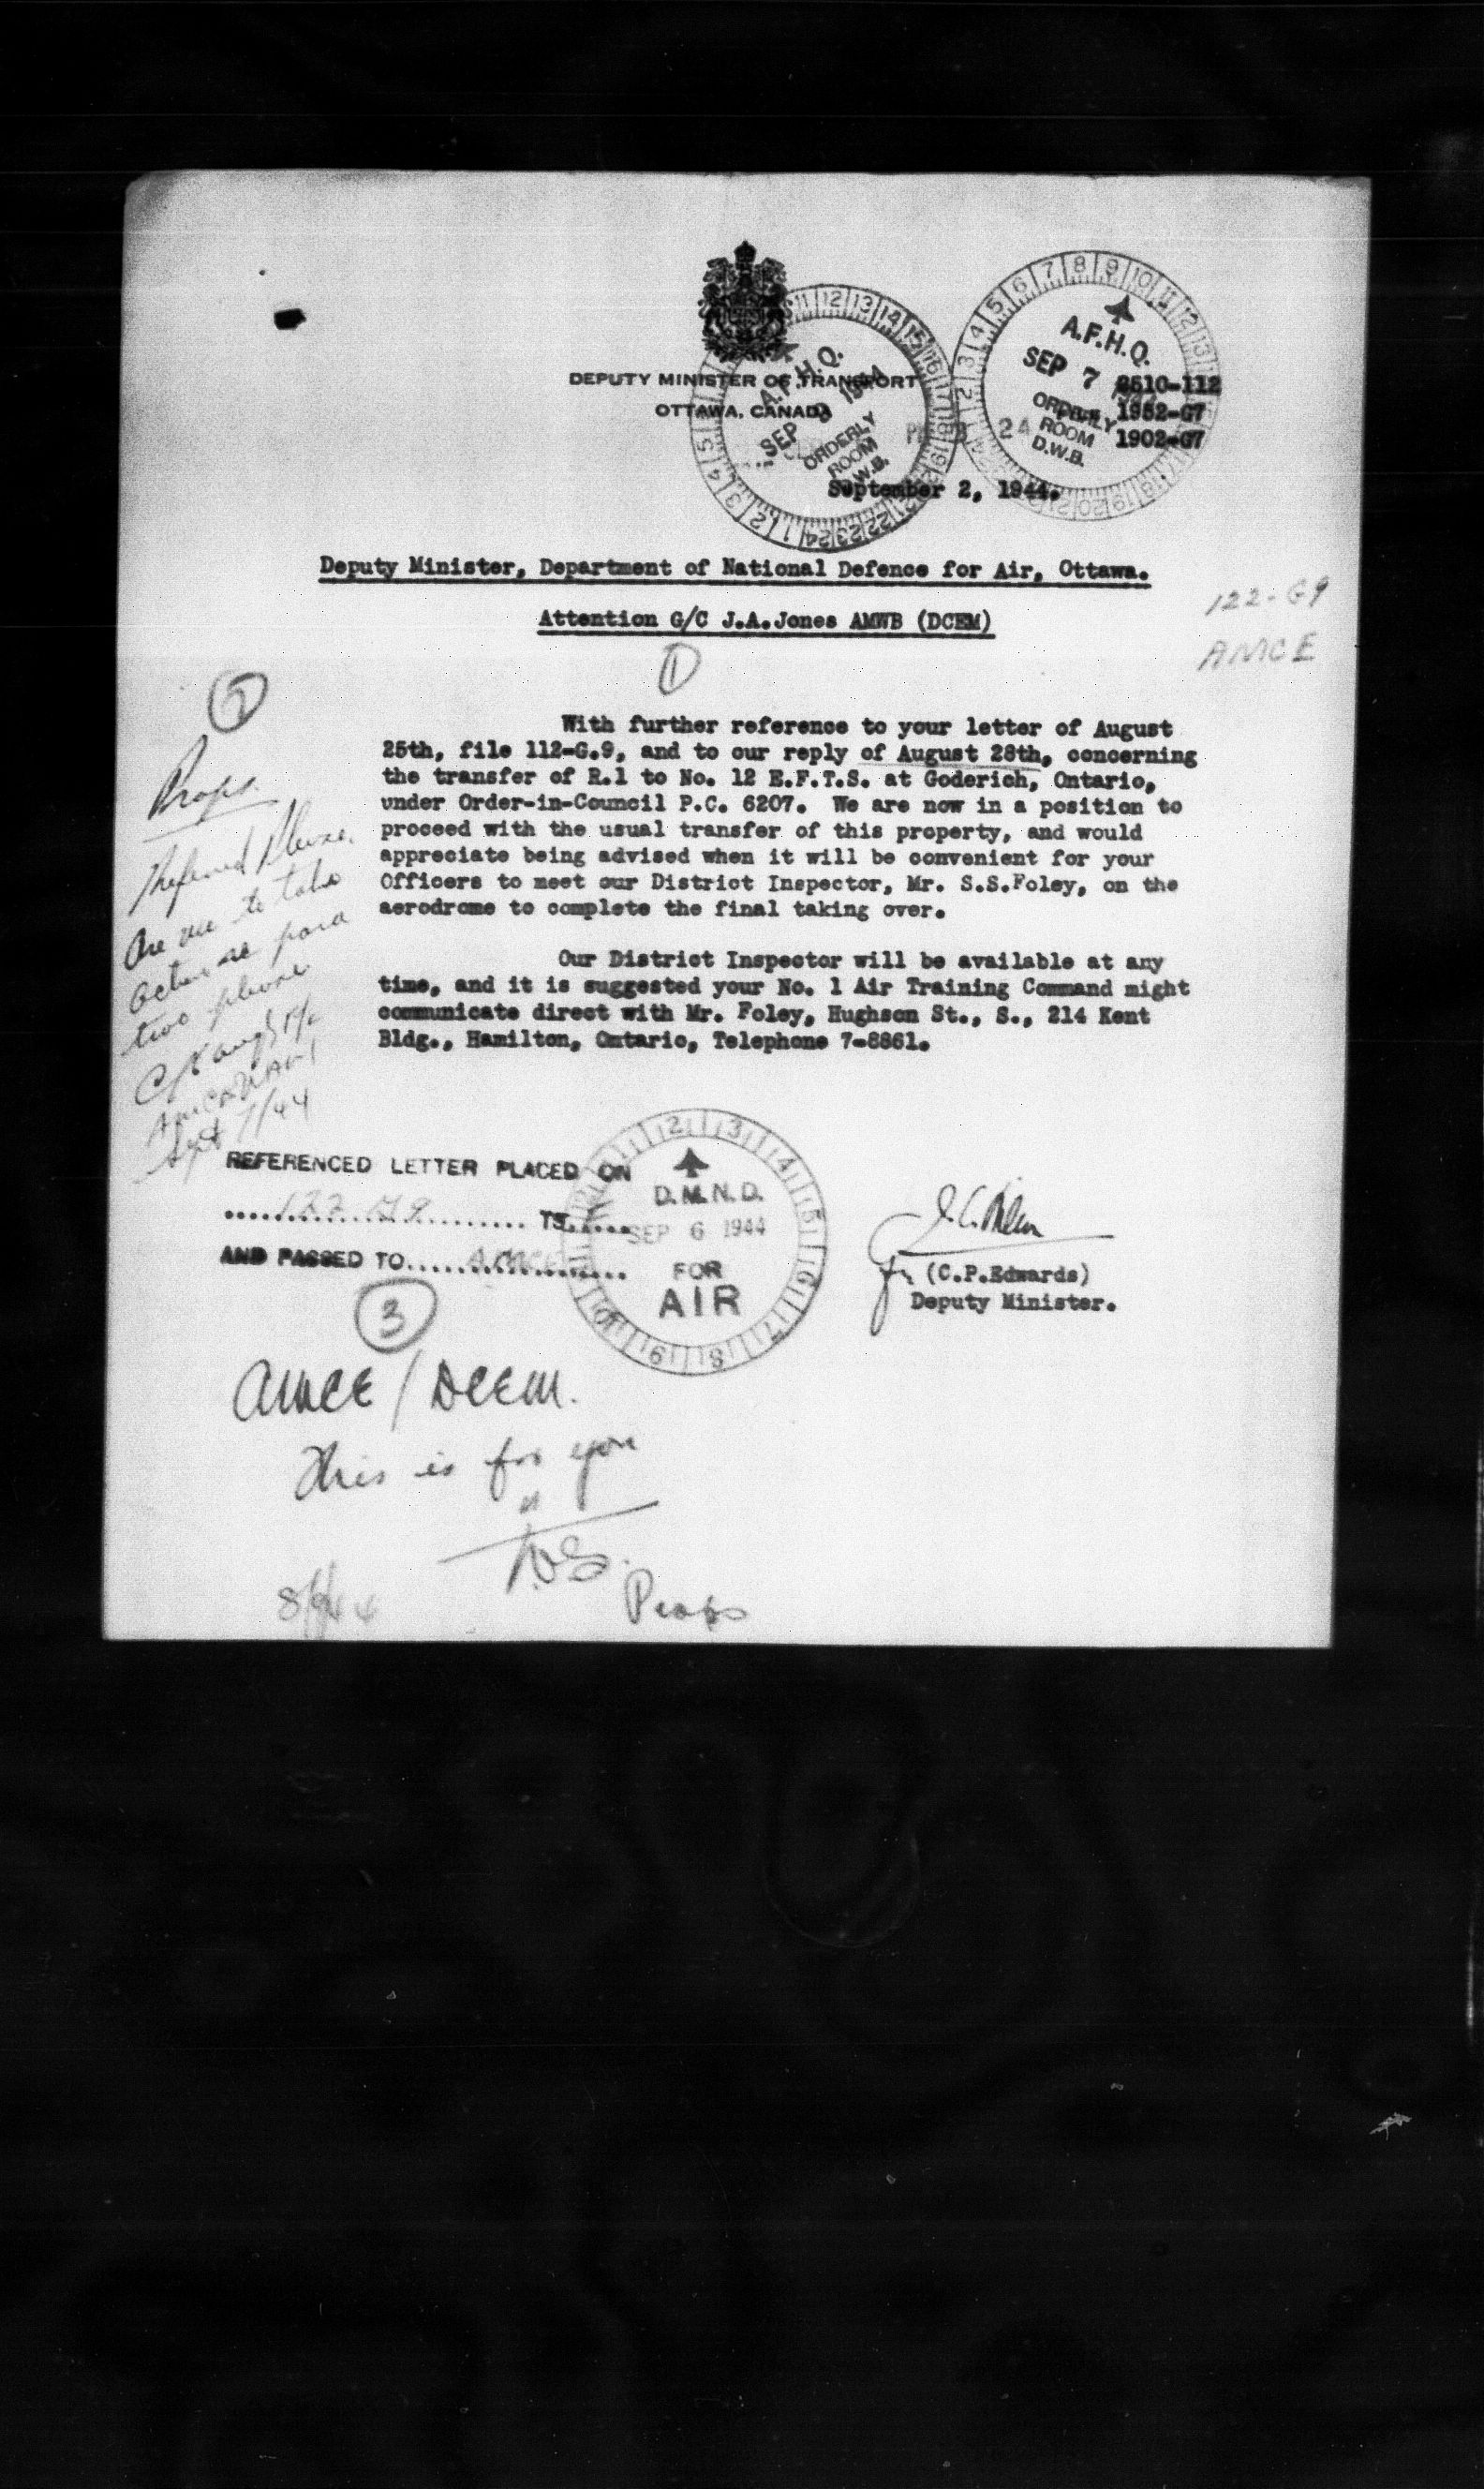 DEPUTY MINISTER OF TRANSPORT
OTTAWA, CANADA
A.F.H.Q.
SEP 1944
ORDERLY
ROOM
W.B.
A.F.H.Q.
SEP 7
ORDERLY
ROOM
D.W.B.
2510-112
1952-G7
1902-G7
24
September 2, 1944.
Deputy Minister, Department of National Defence for Air, Ottawa.
Attention G/C J.A.Jones AMWB (DCEM)
122-G9
AMCE
1
With further reference to your letter of August
25th, file 112-G.9, and to our reply of August 28th, concerning
the transfer of R.1 to No. 12 E.F.T.S. at Goderich, Ontario,
under Order-in-Council P.C. 6207. We are now in a position to
proceed with the usual transfer of this property, and would
appreciate being advised when it will be convenient for your
Officers to meet our District Inspector, Mr. S.S.Foley, on the
aerodrome to complete the final taking over.
Our District Inspector will be available at any
time, and it is suggested your No. 1 Air Training Command might
communicate direct with Mr. Foley, Hughson St., S., 214 Kent
Bldg., Hamilton, Ontario, Telephone 7-8861.
2
Props.
Referred please.
Are we to take
action re para
two please
Sept 7/44
REFERENCED LETTER PLACED ON
122-G9 TS
AND PASSED TO AMCE
D.M.N.D.
SEP 6 1944
FOR
AIR
for (C.P.Edwards)
Deputy Minister.
3
AMCE / DCEM.
This is for you
Props
8/9/44